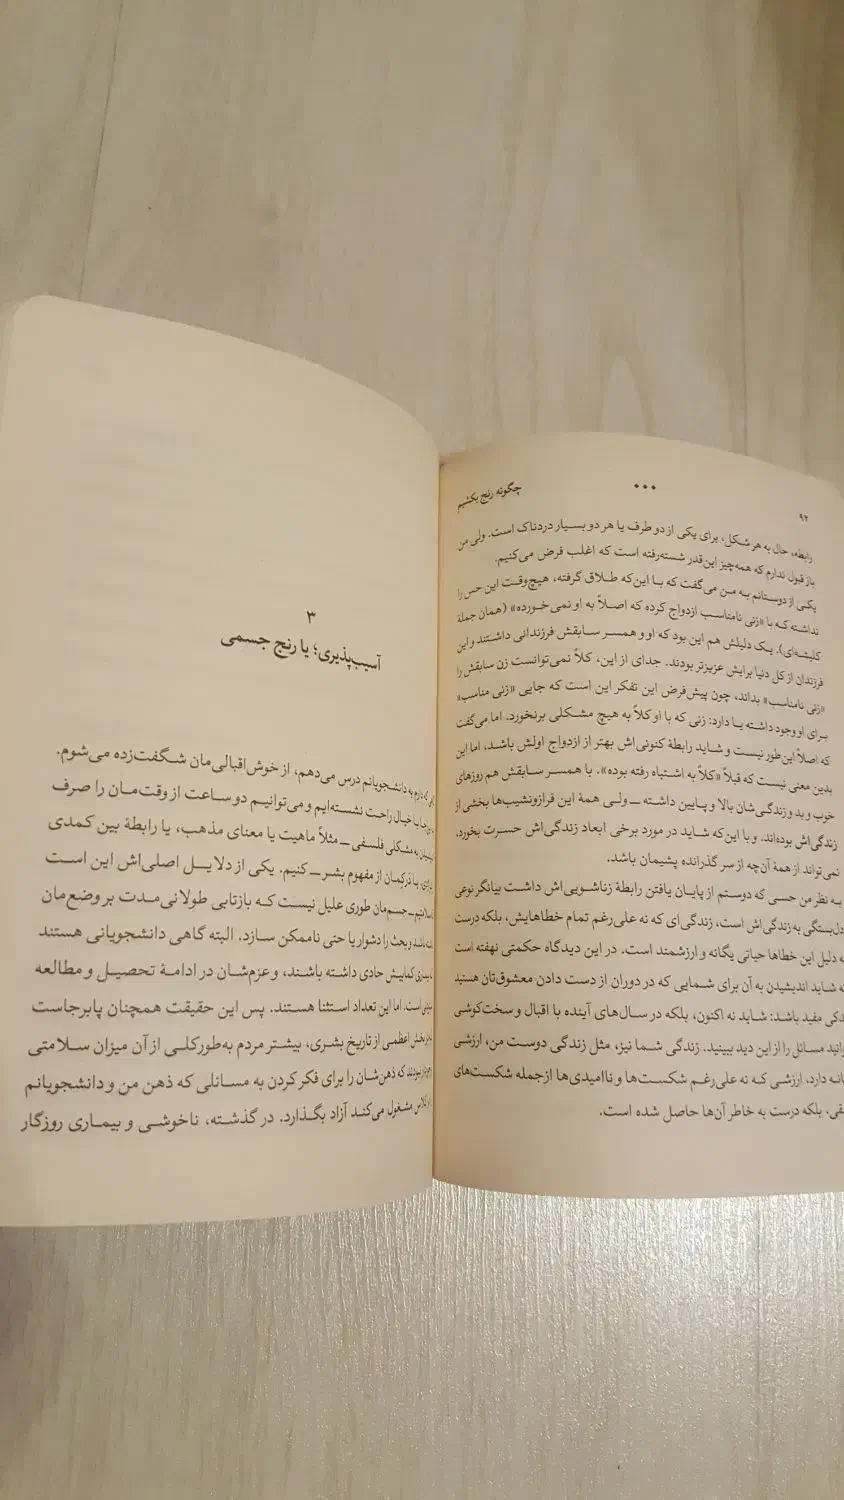 ۹۲
••• چگونه رنج بکشیم
رابطه، حال به هر شکل، برای یکی از دو طرف یا هر دو بسیار دردناک است. ولی من
باز قبول ندارم که همه‌چیز این‌قدر شسته‌رفته است که اغلب فرض می‌کنیم.
یکی از دوستانم به من می‌گفت که با این‌که طلاق گرفته، هیچ‌وقت این حس را
نداشته که با «زنی نامناسب ازدواج کرده که اصلاً به او نمی‌خورده» (همان جملهٔ
کلیشه‌ای). یک دلیلش هم این بود که او و همسر سابقش فرزندانی داشتند و این
فرزندان از کل دنیا برایش عزیزتر بودند. جدای از این، کلاً نمی‌توانست زن سابقش را
«زنی نامناسب» بداند، چون پیش‌فرض این تفکر این است که جایی «زنی مناسب»
برای او وجود داشته یا دارد: زنی که با او کلاً به هیچ مشکلی برنخورد. اما می‌گفت
که اصلاً این‌طور نیست و شاید رابطهٔ کنونی‌اش بهتر از ازدواج اولش باشد، اما این
بدین معنی نیست که قبلاً «کلاً به اشتباه رفته بوده». با همسر سابقش هم روزهای
خوب و بد و زندگی‌شان بالا و پایین داشته ــ ولی همهٔ این فرازونشیب‌ها بخشی از
زندگی‌اش بوده‌اند. و با این‌که شاید در مورد برخی ابعاد زندگی‌اش حسرت بخورد،
نمی‌تواند از همهٔ آن‌چه از سر گذرانده پشیمان باشد.
به نظر من حسی که دوستم از پایان یافتن رابطهٔ زناشویی‌اش داشت بیانگر نوعی
دل‌بستگی به زندگی‌اش است، زندگی‌ای که نه علی‌رغم تمام خطاهایش، بلکه درست
دلیل این خطاها حیاتی یگانه و ارزشمند است. در این دیدگاه حکمتی نهفته است
شاید اندیشیدن به آن برای شمایی که در دوران از دست دادن معشوق‌تان هستید
مفید باشد: شاید نه اکنون، بلکه در سال‌های آینده با اقبال و سخت‌کوشی
مسائل را از این دید ببینید. زندگی شما نیز، مثل زندگی دوست من، ارزشی
دارد، ارزشی که نه علی‌رغم شکست‌ها و ناامیدی‌ها ازجمله شکست‌های
بلکه درست به خاطر آن‌ها حاصل شده است.
۳
آسیب‌پذیری؛ یا رنج جسمی
که دارم به دانشجویانم درس می‌دهم، از خوش‌اقبالی‌مان شگفت‌زده می‌شوم.
با خیال راحت نشسته‌ایم و می‌توانیم دو ساعت از وقت‌مان را صرف
به مشکلی فلسفی ــ مثلاً ماهیت یا معنای مذهب، یا رابطهٔ بین کمدی
از مفهوم بشر ــ کنیم. یکی از دلایل اصلی‌اش این است
جسم‌مان طوری علیل نیست که بازتابی طولانی‌مدت بر وضع‌مان
و بحث را دشوار یا حتی ناممکن سازد. البته گاهی دانشجویانی هستند
کمابیش حادی داشته باشند، و عزم‌شان در ادامهٔ تحصیل و مطالعه
است. اما این تعداد استثنا هستند. پس این حقیقت همچنان پابرجاست
بخش اعظمی از تاریخ بشری، بیشتر مردم به‌طورکلی از آن میزان سلامتی
نبودند که ذهن‌شان را برای فکر کردن به مسائلی که ذهن من و دانشجویانم
کلاس مشغول می‌کند آزاد بگذارد. در گذشته، ناخوشی و بیماری روزگار